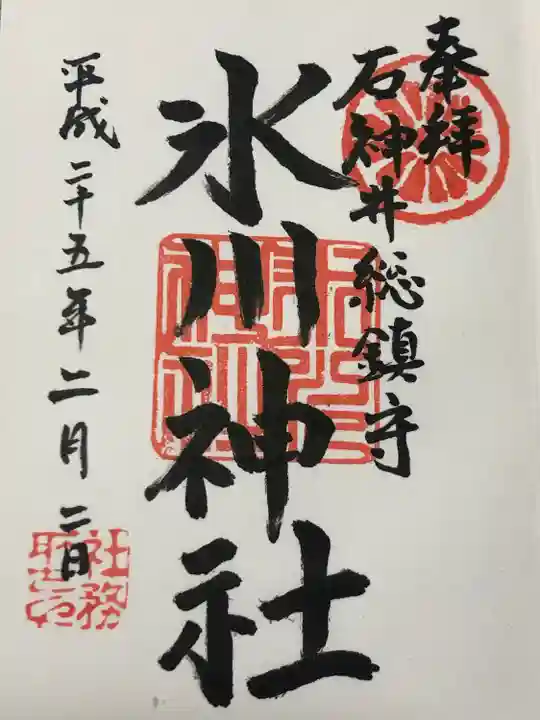 奉拝
石神井総鎮守
氷川神社
平成二十五年二月二日
社務所印